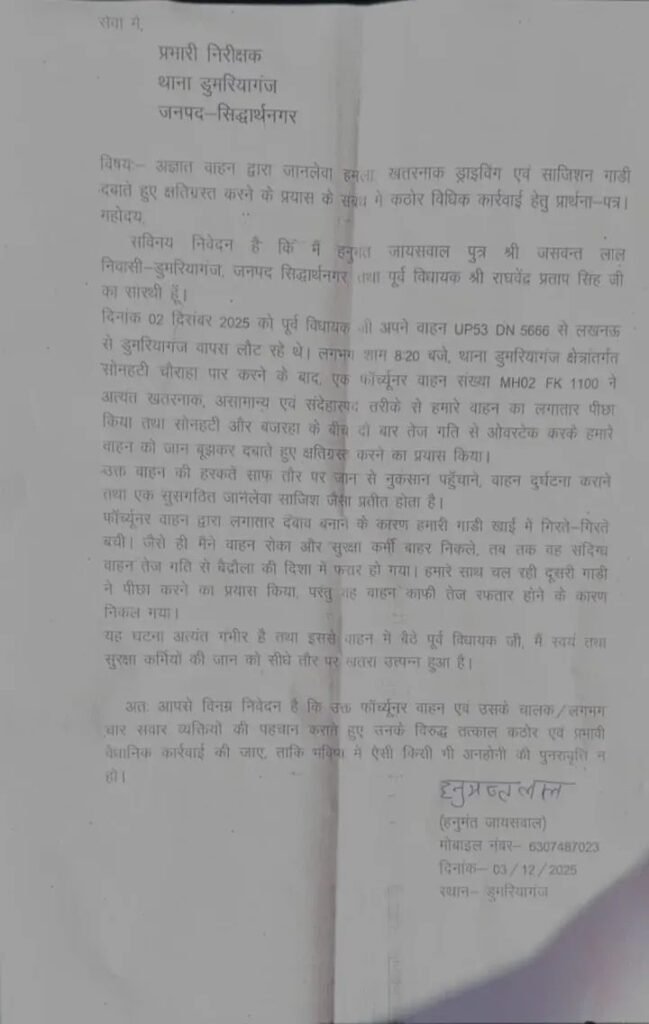 सेवा मे,
प्रभारी निरीक्षक
थाना डुमरियागंज
जनपद–सिद्धार्थनगर
विषयः– अज्ञात वाहन द्वारा जानलेवा हमला खतरनाक ड्राइविंग एवं साजिशन गाडी
दबाते हुए क्षतिग्रस्त करने के प्रयास के संबंध मे कठोर विधिक कार्रवाई हेतु प्रार्थना–पत्र।
महोदय,
सविनय निवेदन है कि मैं हनुमंत जायसवाल पुत्र श्री जसवन्त लाल
निवासी–डुमरियागंज, जनपद सिद्धार्थनगर तथा पूर्व विधायक श्री राघवेंद्र प्रताप सिंह जी
का सारथी हूँ।
दिनांक 02 दिसंबर 2025 को पूर्व विधायक जी अपने वाहन UP53 DN 5666 से लखनऊ
से डुमरियागंज वापस लौट रहे थे। लगभग शाम 8:20 बजे, थाना डुमरियागंज क्षेत्रांतर्गत
सोनहटी चौराहा पार करने के बाद, एक फॉर्च्यूनर वाहन संख्या MH02 FK 1100 ने
अत्यंत खतरनाक, असामान्य एवं संदेहास्पद तरीके से हमारे वाहन का लगातार पीछा
किया तथा सोनहटी और बजरहा के बीच दो बार तेज गति से ओवरटेक करके हमारे
वाहन को जान बूझकर दबाते हुए क्षतिग्रस्त करने का प्रयास किया।
उक्त वाहन की हरकतें साफ तौर पर जान से नुकसान पहुँचाने, वाहन दुर्घटना कराने
तथा एक सुसगठित जानलेवा साजिश जैसा प्रतीत होता है।
फॉर्च्यूनर वाहन द्वारा लगातार दबाव बनाने के कारण हमारी गाडी खाई में गिरते–गिरते
बची। जैसे ही मैने वाहन रोका और सुरक्षा कर्मी बाहर निकले, तब तक वह संदिग्ध
वाहन तेज गति से बैदौला की दिशा में फरार हो गया। हमारे साथ चल रही दूसरी गाडी
ने पीछा करने का प्रयास किया, परंतु वह वाहन काफी तेज रफतार होने के कारण
निकल गया।
यह घटना अत्यंत गंभीर है तथा इससे वाहन मे बैठे पूर्व विधायक जी, मैं स्वयं तथा
सुरक्षा कर्मियों की जान को सीधे तौर पर खतरा उत्पन्न हुआ है।
अतः आपसे विनम्र निवेदन है कि उक्त फॉर्च्यूनर वाहन एवं उसके चालक/लगभग
चार सवार व्यक्तियों की पहचान कराते हुए उनके विरुद्ध तत्काल कठोर एवं प्रभावी
वैधानिक कार्रवाई की जाए, ताकि भविष्य मे ऐसी किसी भी अनहोनी की पुनरावृत्ति न
हो।
हनुमन्त लाल
(हनुमंत जायसवाल)
मोबाइल नंबर– 6307487023
दिनांक– 03/12/2025
स्थान– डुमरियागंज